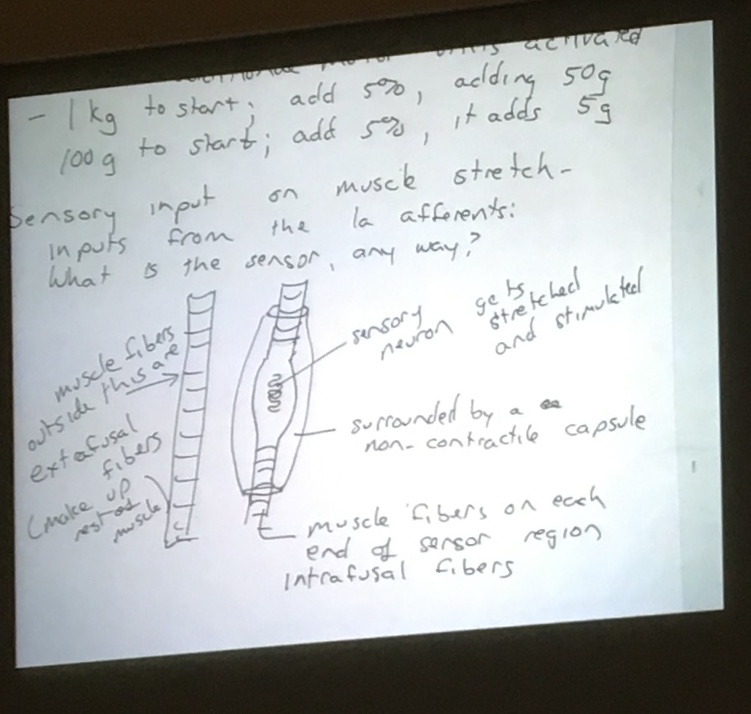 activated
- 1 kg to start; add 5%, adding 50g
100g to start; add 5%, it adds 5g
Sensory input on muscle stretch -
inputs from the Ia afferents:
What is the sensor, any way?
muscle fibers
outside this are
extrafusal
fibers
(make up
rest of
muscle)
sensory gets
neuron stretched
and stimulated
surrounded by a
non-contractile capsule
muscle fibers on each
end of sensor region
intrafusal fibers